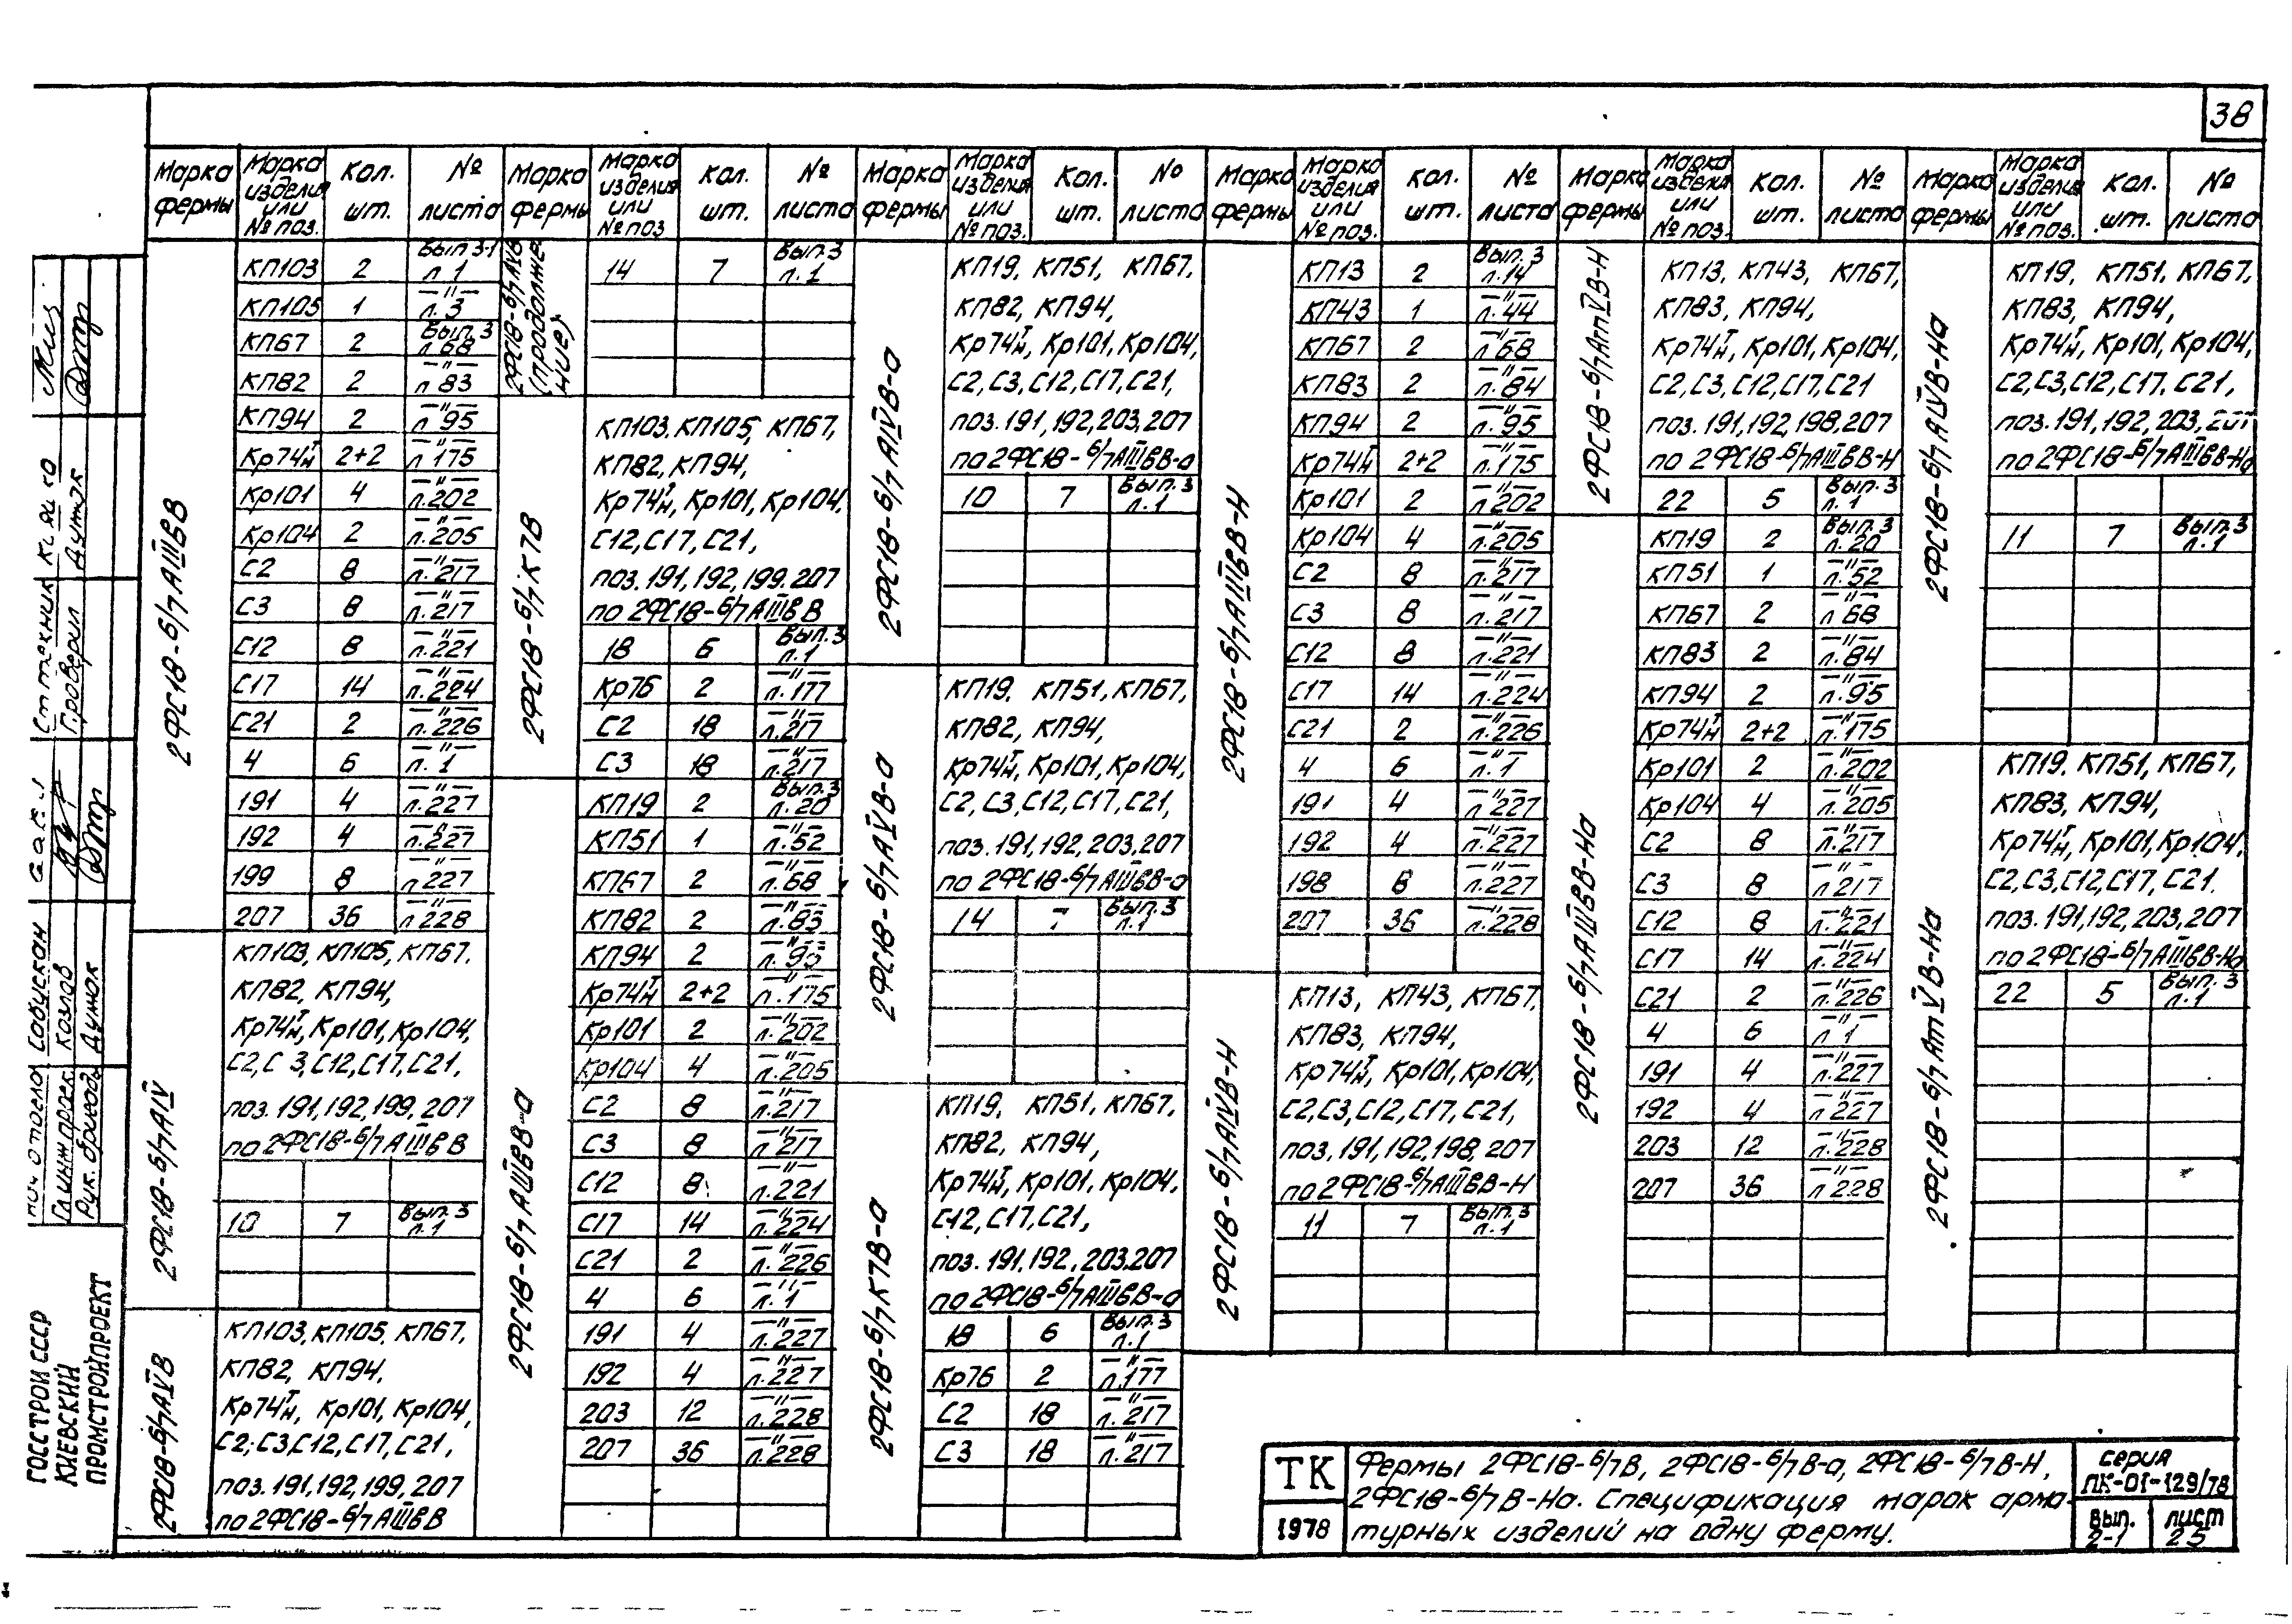 38
Марка фермы | Марка изделия или № поз. | Кол. шт. | № листа
2ФС18-6/7АIIIвВ
КП103 2 Вып.3-1 л.1
КП105 1 —"— л.3
КП67 2 Вып.3 л.68
КП82 2 —"— л.83
КП94 2 —"— л.95
Кр74т/н 2+2 —"— л.175
Кр101 4 —"— л.202
Кр104 2 —"— л.205
С2 8 —"— л.217
С3 8 —"— л.217
С12 8 —"— л.221
С17 14 —"— л.224
С21 2 —"— л.226
4 6 —"— л.1
191 4 —"— л.227
192 4 —"— л.227
199 8 —"— л.227
207 36 —"— л.228
2ФС18-6/7АIV
КП103, КП105, КП67,
КП82, КП94,
Кр74т/н, Кр101, Кр104,
С2, С3, С12, С17, С21,
поз. 191, 192, 199, 207
по 2ФС18-6/7АIIIвВ
10 7 Вып.3 л.1
2ФС18-6/7АVВ
КП103, КП105, КП67,
КП82, КП94,
Кр74т/н, Кр101, Кр104,
С2, С3, С12, С17, С21,
поз. 191, 192, 199, 207
по 2ФС18-6/7АIIIвВ
Марка фермы | Марка изделия или № поз. | Кол. шт. | № листа
2ФС18-6/7АVВ (продолжение)
14 7 Вып.3 л.1
2ФС18-6/7К7В
КП103, КП105, КП67,
КП82, КП94,
Кр74т/н, Кр101, Кр104,
С12, С17, С21,
поз. 191, 192, 199, 207
по 2ФС18-6/7АIIIвВ
18 6 Вып.3 л.1
Кр76 2 —"— л.177
С2 18 —"— л.217
С3 18 —"— л.217
2ФС18-6/7АIIIвВ-а
КП19 2 Вып.3 л.20
КП51 1 —"— л.52
КП67 2 —"— л.68
КП82 2 —"— л.83
КП94 2 —"— л.95
Кр74т/н 2+2 —"— л.175
Кр101 2 —"— л.202
Кр104 4 —"— л.205
С2 8 —"— л.217
С3 8 —"— л.217
С12 8 —"— л.221
С17 14 —"— л.224
С21 2 —"— л.226
4 6 —"— л.1
191 4 —"— л.227
192 4 —"— л.227
203 12 —"— л.228
207 36 —"— л.228
Марка фермы | Марка изделия или № поз. | Кол. шт. | № листа
2ФС18-6/7АIVВ-а
КП19, КП51, КП67,
КП82, КП94,
Кр74т/н, Кр101, Кр104,
С2, С3, С12, С17, С21,
поз. 191, 192, 203, 207
по 2ФС18-6/7АIIIвВ-а
10 7 Вып.3 л.1
2ФС18-6/7АVВ-а
КП19, КП51, КП67,
КП82, КП94,
Кр74т/н, Кр101, Кр104,
С2, С3, С12, С17, С21,
поз. 191, 192, 203, 207
по 2ФС18-6/7АIIIвВ-а
14 7 Вып.3 л.1
2ФС18-6/7К7В-а
КП19, КП51, КП67,
КП82, КП94,
Кр74т/н, Кр101, Кр104,
С12, С17, С21,
поз. 191, 192, 203, 207
по 2ФС18-6/7АIIIвВ-а
18 6 Вып.3 л.1
Кр76 2 —"— л.177
С2 18 —"— л.217
С3 18 —"— л.217
Марка фермы | Марка изделия или № поз. | Кол. шт. | № листа
2ФС18-6/7АIIIвВ-Н
КП13 2 Вып.3 л.14
КП43 1 —"— л.44
КП67 2 —"— л.68
КП83 2 —"— л.84
КП94 2 —"— л.95
Кр74т/н 2+2 —"— л.175
Кр101 2 —"— л.202
Кр104 4 —"— л.205
С2 8 —"— л.217
С3 8 —"— л.217
С12 8 —"— л.221
С17 14 —"— л.224
С21 2 —"— л.226
4 6 —"— л.1
191 4 —"— л.227
192 4 —"— л.227
198 8 —"— л.227
207 36 —"— л.228
2ФС18-6/7АIVВ-Н
КП13, КП43, КП67,
КП83, КП94,
Кр74т/н, Кр101, Кр104,
С2, С3, С12, С17, С21,
поз. 191, 192, 198, 207
по 2ФС18-6/7АIIIвВ-Н
11 7 Вып.3 л.1
Марка фермы | Марка изделия или № поз. | Кол. шт. | № листа
2ФС18-6/7АтVВ-Н
КП13, КП43, КП67,
КП83, КП94,
Кр74т/н, Кр101, Кр104,
С2, С3, С12, С17, С21
поз. 191, 192, 198, 207
по 2ФС18-6/7АIIIвВ-Н
22 5 Вып.3 л.1
2ФС18-6/7АIIIвВ-На
КП19 2 Вып.3 л.20
КП51 1 —"— л.52
КП67 2 —"— л.68
КП83 2 —"— л.84
КП94 2 —"— л.95
Кр74т/н 2+2 —"— л.175
Кр101 2 —"— л.202
Кр104 4 —"— л.205
С2 8 —"— л.217
С3 8 —"— л.217
С12 8 —"— л.221
С17 14 —"— л.224
С21 2 —"— л.226
4 6 —"— л.1
191 4 —"— л.227
192 4 —"— л.227
203 12 —"— л.228
207 36 —"— л.228
Марка фермы | Марка изделия или № поз. | Кол. шт. | № листа
2ФС18-6/7АIVВ-На
КП19, КП51, КП67,
КП83, КП94,
Кр74т/н, Кр101, Кр104,
С2, С3, С12, С17, С21,
поз. 191, 192, 203, 207
по 2ФС18-6/7АIIIвВ-На
11 7 Вып.3 л.1
2ФС18-6/7АтVВ-На
КП19, КП51, КП67,
КП83, КП94,
Кр74т/н, Кр101, Кр104,
С2, С3, С12, С17, С21.
поз. 191, 192, 203, 207
по 2ФС18-6/7АIIIвВ-На
22 5 Вып.3 л.1
ТК
1978
Фермы 2ФС18-6/7В, 2ФС18-6/7В-а, 2ФС18-6/7В-Н,
2ФС18-6/7В-На. Спецификация марок арма-
турных изделий на одну ферму.
серия
ПК-01-129/78
Вып. 2-1
лист 25
Нач отдела Собускан
Гл инж проек. Козлов
Рук. бригады Дунюк
Ст техник
Проверил
ГОССТРОЙ СССР
КИЕВСКИЙ
ПРОМСТРОЙПРОЕКТ